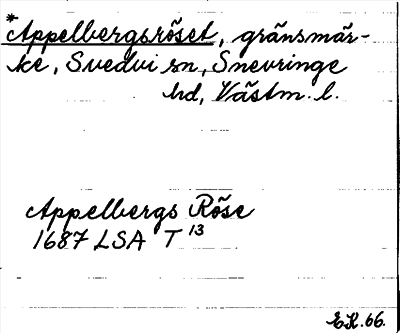 *Appelbergsröset, gränsmär-
ke, Svedvi sn, Snevringe
hd, Västm. l.
Appelbergs Röse
1687 LSA T 13
EK. 66.